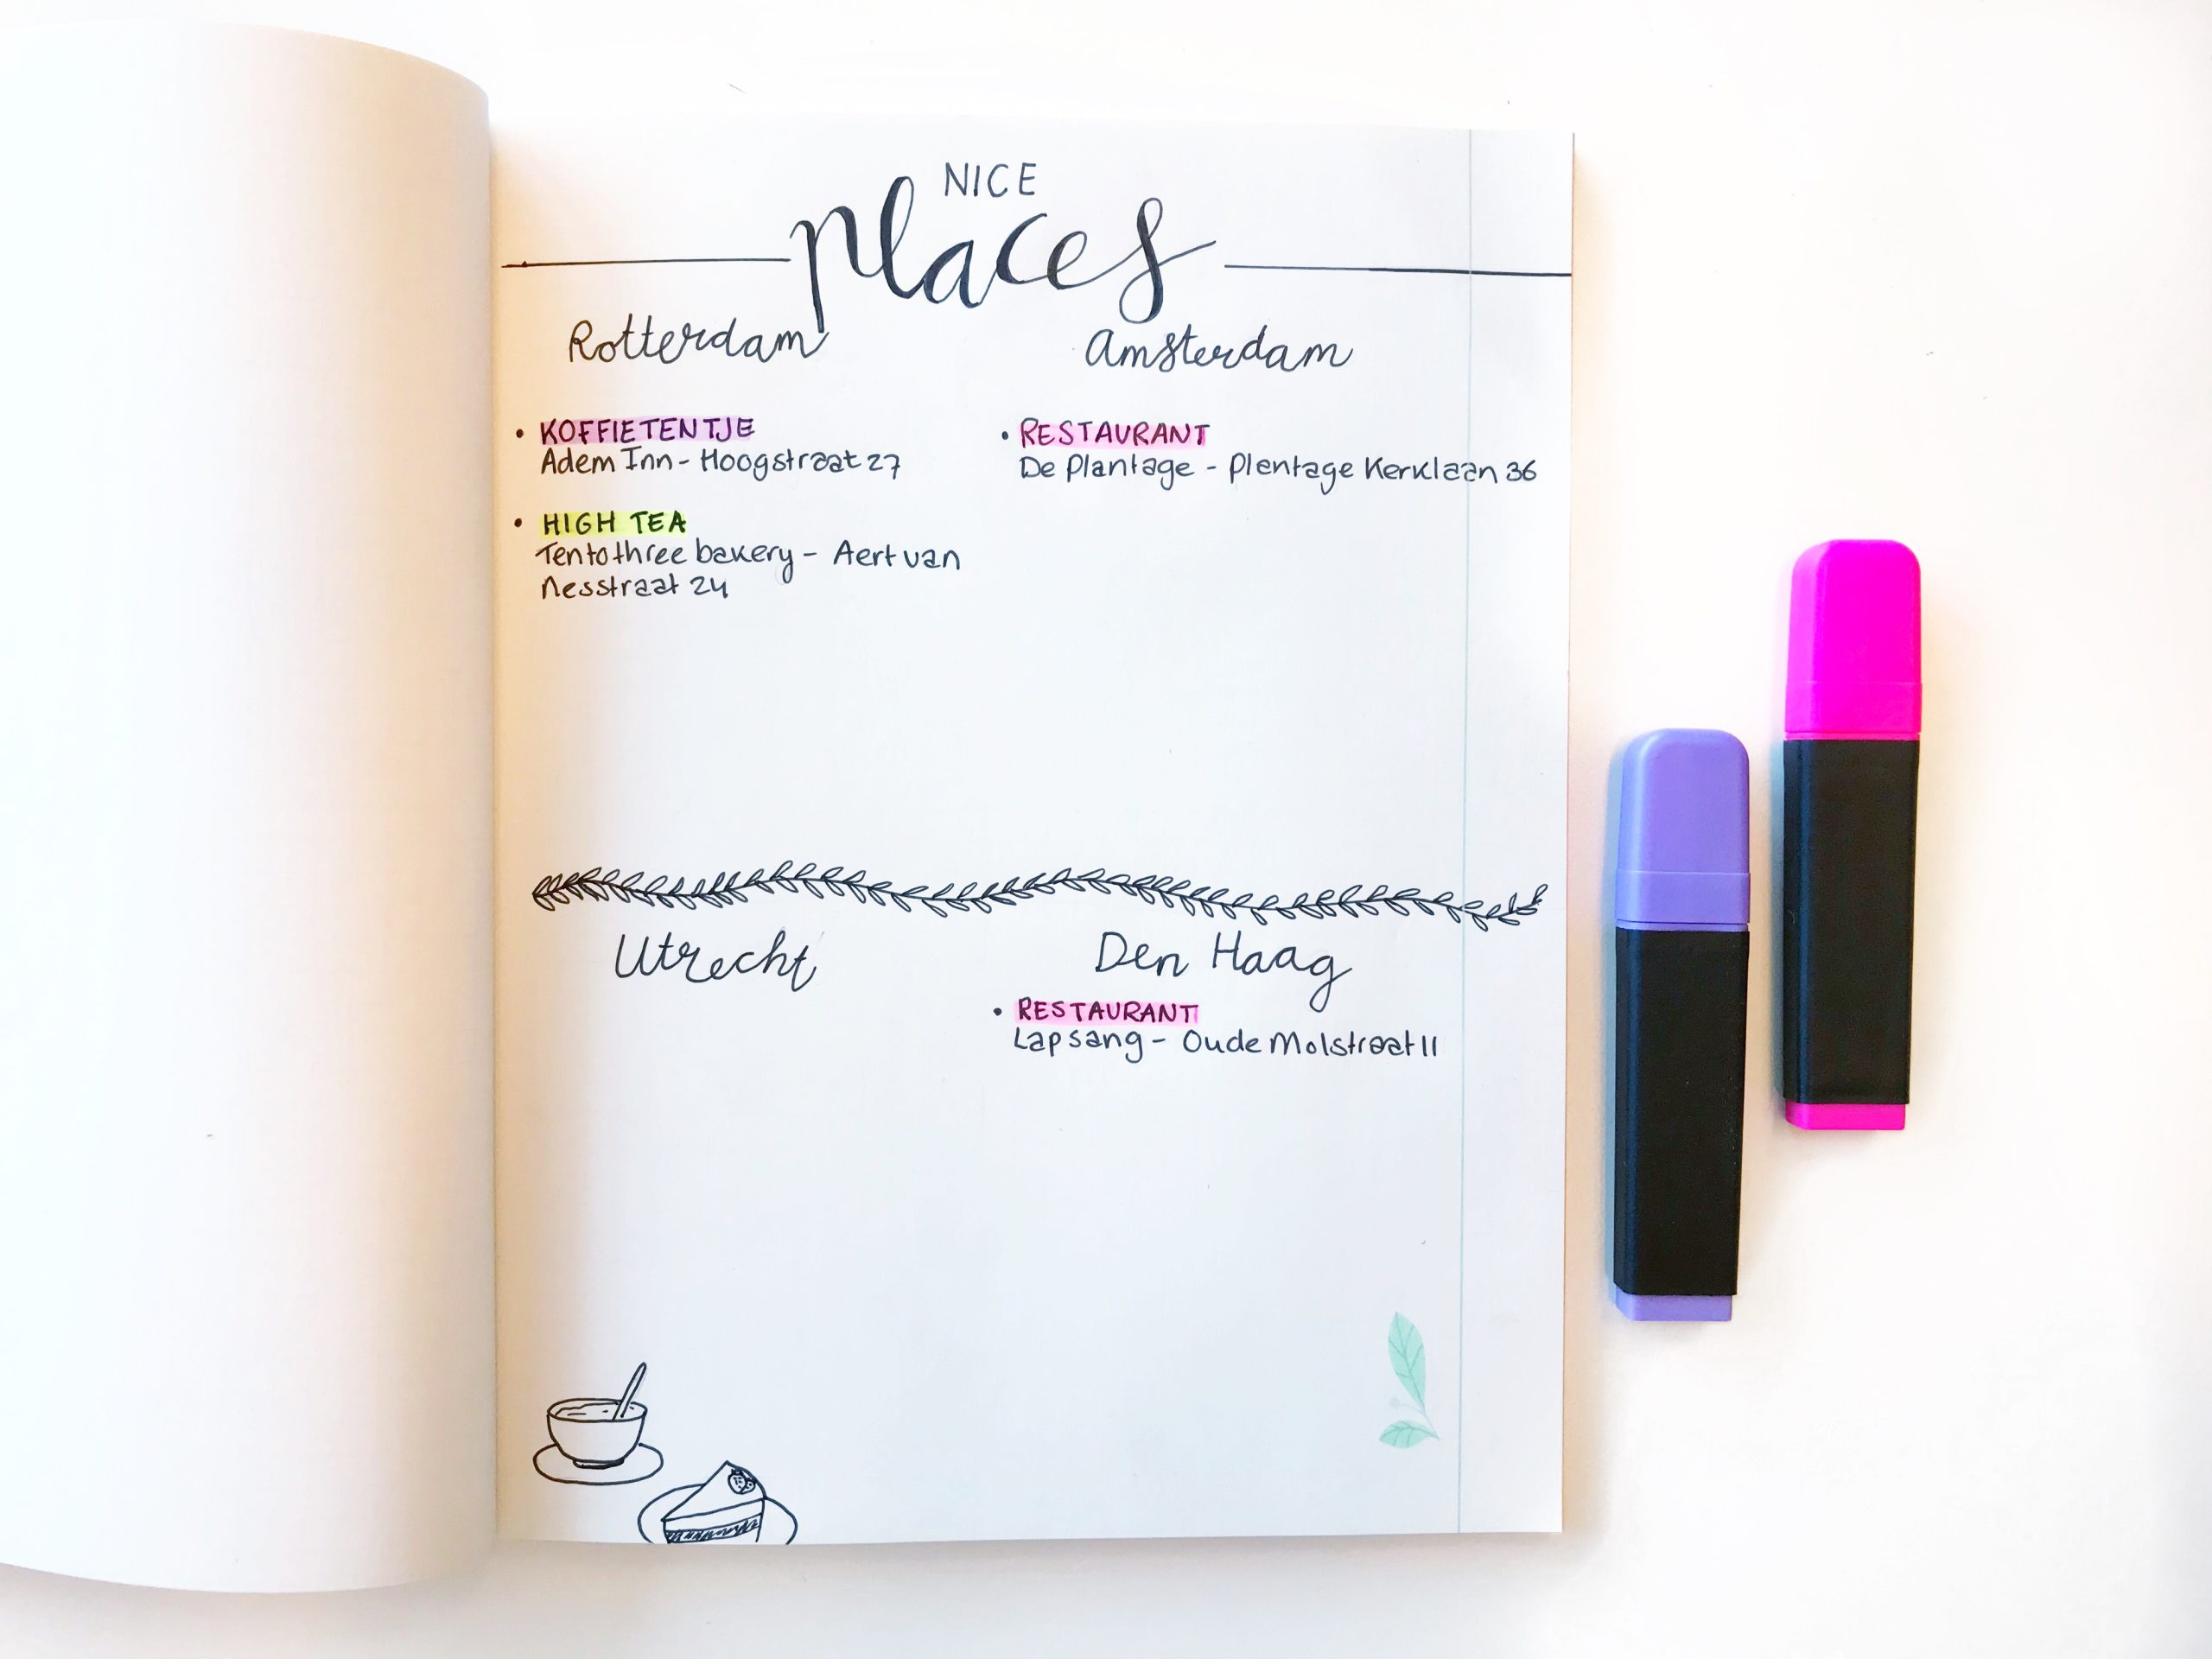 NICE
places
Rotterdam
• KOFFIETENTJE
Adem Inn - Hoogstraat 27
• HIGH TEA
Tentothree bakery - Aert van
Nesstraat 24
Amsterdam
• RESTAURANT
De Plantage - Plentage Kerklaan 36
Utrecht
Den Haag
• RESTAURANT
Lapsang - Oude Molstraat 11